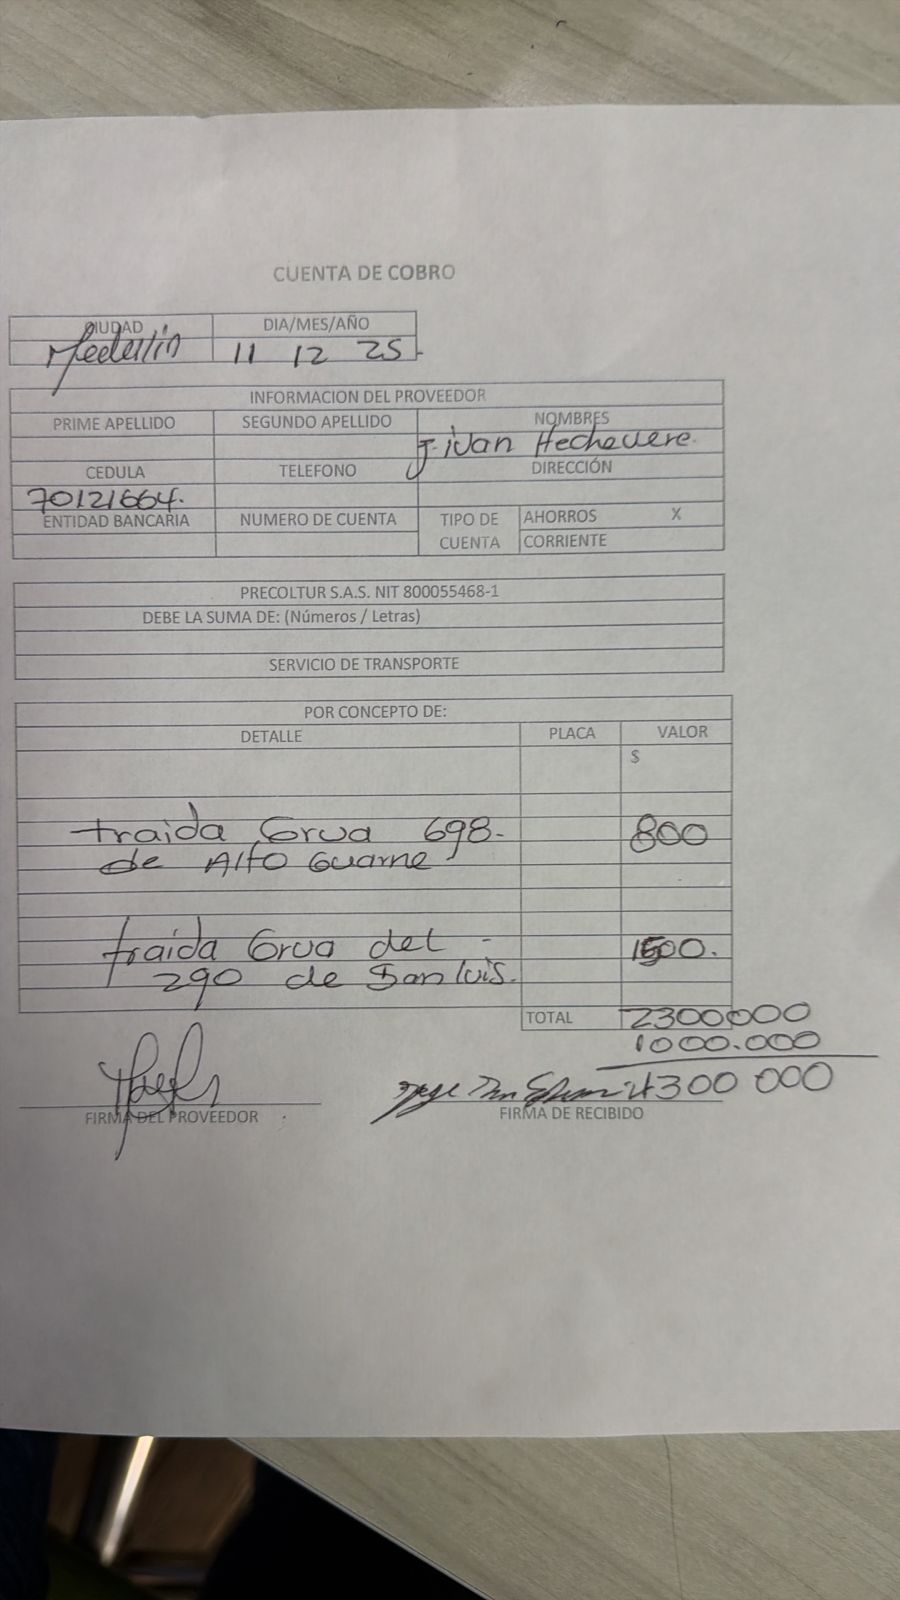 CUENTA DE COBRO
CIUDAD DIA/MES/AÑO
Medellin 11 12 25.
INFORMACION DEL PROVEEDOR
PRIME APELLIDO SEGUNDO APELLIDO NOMBRES
J. ivan Hechevere.
CEDULA TELEFONO DIRECCIÓN
70121664.
ENTIDAD BANCARIA NUMERO DE CUENTA TIPO DE CUENTA AHORROS X
CORRIENTE
PRECOLTUR S.A.S. NIT 800055468-1
DEBE LA SUMA DE: (Números / Letras)
SERVICIO DE TRANSPORTE
POR CONCEPTO DE:
DETALLE PLACA VALOR
$
traida Grua 698. 800
de Alto Guarne
traida Grua del - 1500.
290 de San luis.
TOTAL 2300000
1000.000
1300 000
FIRMA DEL PROVEEDOR FIRMA DE RECIBIDO